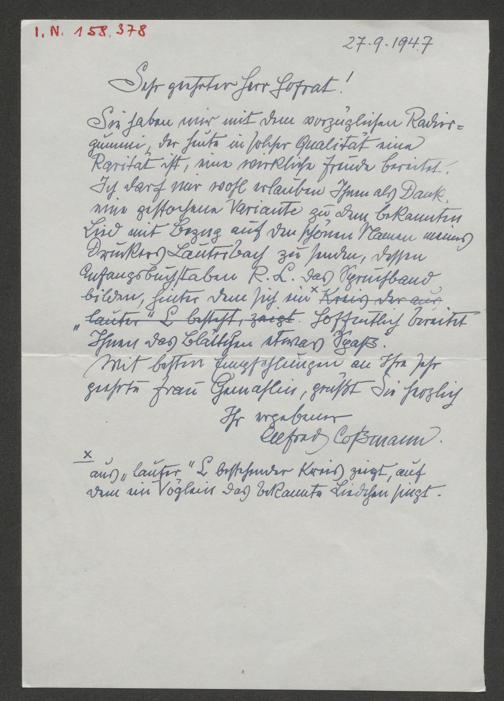 I. N. 158.378
27.9.1947
Sehr geehrter Herr Hofrat!
Sie haben mir mit dem vorzüglichen Radier=
gummi, der heute in solcher Qualität eine
Rarität ist, eine wirkliche Freude bereitet.
Ich darf mir wohl erlauben Ihnen als Dank,
eine gestochene Variante zu dem bekannten
Lied mit Bezug auf den schönen Namen meines
Druckers Lauterbach zu senden, dessen
Anfangsbuchstaben R. L. das Spruchband
bilden, hinter dem sich ein x Kreis der aus
„lauter" L besteht, zeigt. Hoffentlich bereitet
Ihnen das Blättchen etwas Spaß.
Mit besten Empfehlungen an Ihre sehr
geehrte Frau Gemahlin, grüßt Sie herzlich
Ihr ergebener
Alfred Coßmann.
x
aus „lauter" L bestehender Kreis zeigt, auf
dem ein Vöglein das bekannte Liedchen singt.